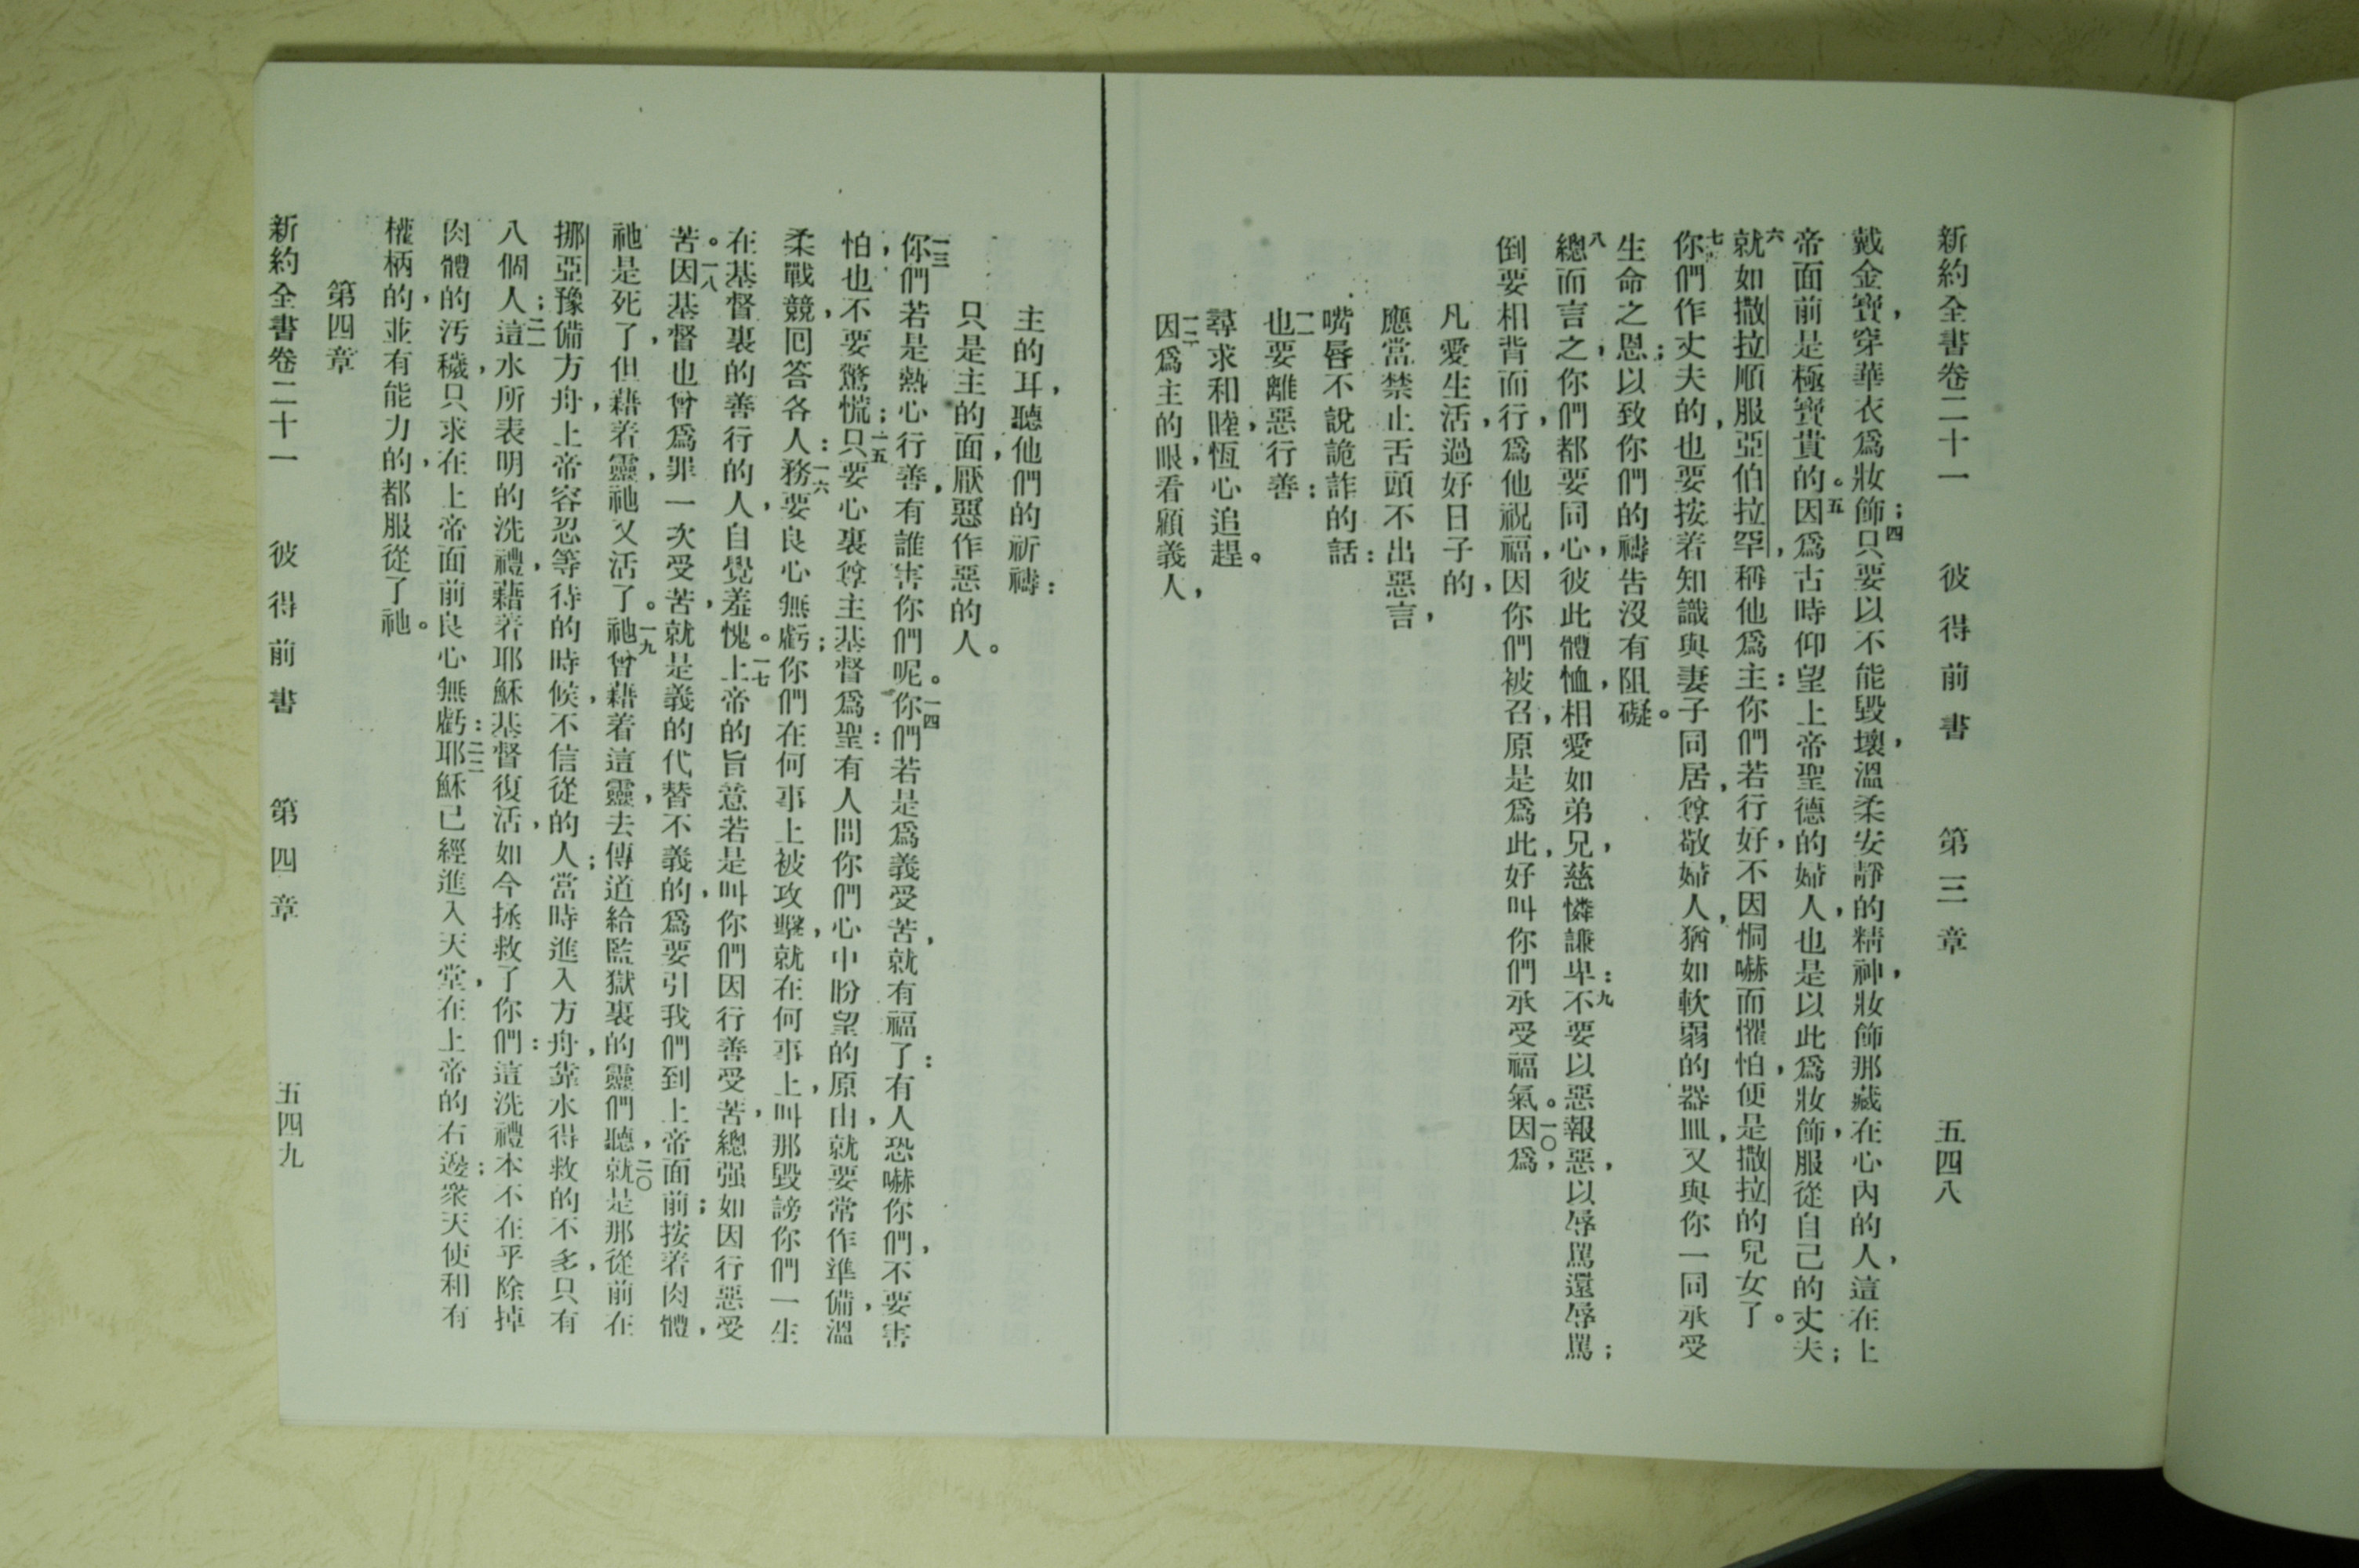 新約全書卷二十一 彼得前書 第三章 五四八
戴金寶，穿華衣爲妝飾；四只要以不能毀壞，溫柔安靜的精神，妝飾那藏在心內的人，這在上
帝面前是極寶貴的。五因爲古時仰望上帝聖德的婦人，也是以此爲妝飾，服從自己的丈夫；
六就如撒拉順服亞伯拉罕，稱他爲主：你們若行好，不因恫嚇而懼怕，便是撒拉的兒女了。
七你們作丈夫的，也要按着知識與妻子同居，尊敬婦人，猶如軟弱的器皿，又與你一同承受
生命之恩；以致你們的禱告沒有阻礙。
八總而言之，你們都要同心，彼此體恤，相愛如弟兄，慈憐謙卑：九不要以惡報惡，以辱罵還辱罵；
倒要相背而行，爲他祝福，因你們被召，原是爲此，好叫你們承受福氣。一〇因爲，
凡愛生活，過好日子的，
應當禁止舌頭不出惡言，
嘴唇不說詭詐的話：
一一也要離惡行善：
尋求和睦，恆心追趕。
一二因爲主的眼，看顧義人，
主的耳，聽他們的祈禱：
只是主的面，厭惡作惡的人。
一三你們若是熱心行善，有誰害你們呢。一四你們若是爲義受苦，就有福了：有人恐嚇你們，不要害
怕，也不要驚慌；一五只要心裏尊主基督爲聖：有人問你們心中盼望的原由，就要常作準備，溫
柔戰競，回答各人：一六務要良心無虧；你們在何事上被攻擊，就在何事上，叫那毀謗你們一生
在基督裏的善行的人，自覺羞愧。一七上帝的旨意若是叫你們因行善受苦，總强如因行惡受
苦。一八因基督也曾爲罪一次受苦，就是義的代替不義的，爲要引我們到上帝面前；按着肉體，
祂是死了，但藉着靈，祂又活了。一九祂曾藉着這靈，去傳道給監獄裏的靈們聽，二〇就是那從前在
挪亞豫備方舟，上帝容忍等待的時候，不信從的人；當時進入方舟，靠水得救的不多，只有
八個人；二一這水所表明的洗禮，藉着耶穌基督復活，如今拯救了你們：這洗禮本不在乎除掉
肉體的汚穢，只求在上帝面前良心無虧：二二耶穌已經進入天堂，在上帝的右邊；衆天使和有
權柄的，並有能力的，都服從了祂。
第四章
新約全書卷二十一 彼得前書 第四章 五四九